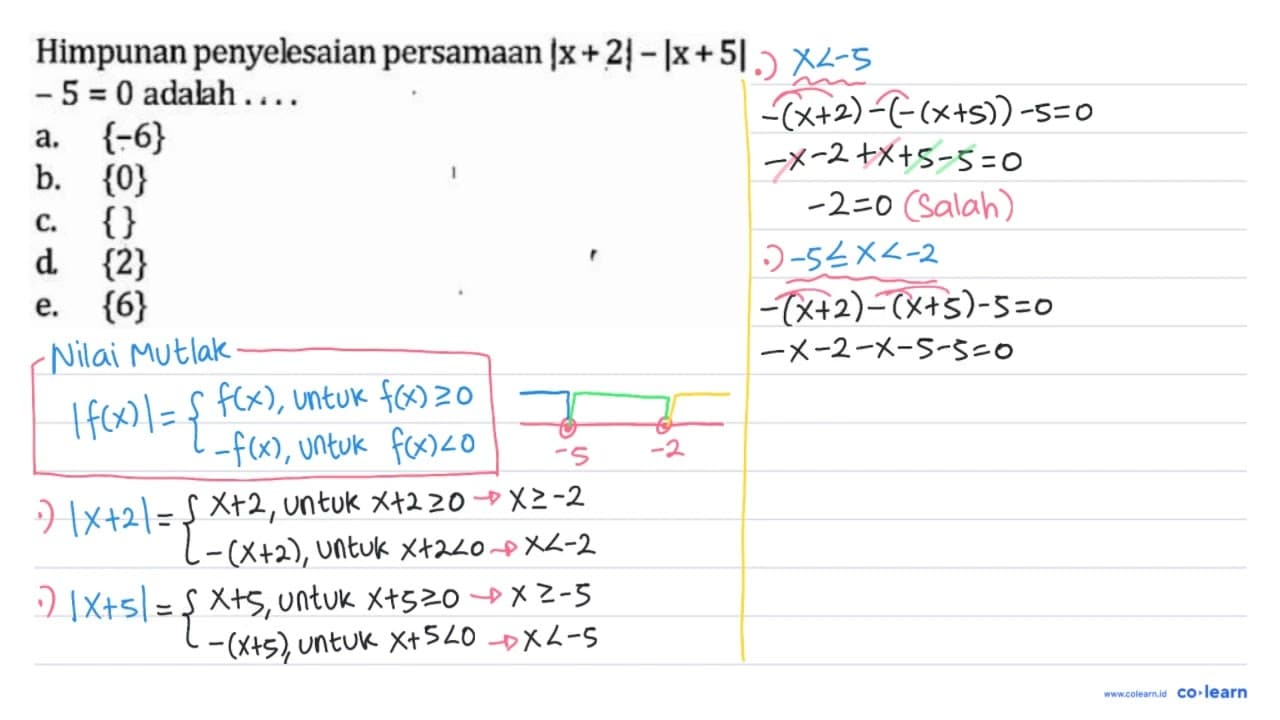 Himpunan penyelesaian persamaan |x + 2| – |x + 5|
– 5 = 0 adalah . . . .
a. {–6}
b. {0}
c. { }
d. {2}
e. {6}
Nilai Mutlak
|f(x)| = { f(x), untuk f(x) ≥ 0
-f(x), untuk f(x) < 0
-5 -2
•) |x+2| = { x+2, untuk x+2 ≥ 0 → x ≥ -2
-(x+2), untuk x+2<0 → x<-2
•) |x+5| = { x+5, untuk x+5≥0 → x ≥ -5
-(x+5), untuk x+5<0 → x<-5
•) x<-5
-(x+2)-(-(x+5))-5=0
-x-2+x+5-5=0
-2=0 (Salah)
•) -5≤x<-2
-(x+2)-(x+5)-5=0
-x-2-x-5-5=0
www.colearn.id co•learn